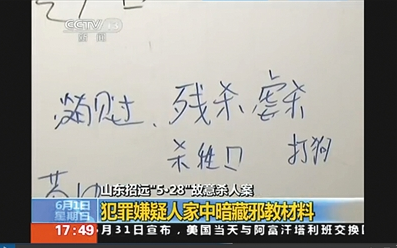 CCTV 13
新闻
残杀 虐杀
杀牲口 打狗
山东招远“5·28”故意杀人案
6月1日
星期日
犯罪嫌疑人家中暗藏邪教材料
17:49
月31日宣布，美国当天与阿富汗塔利班交换囚